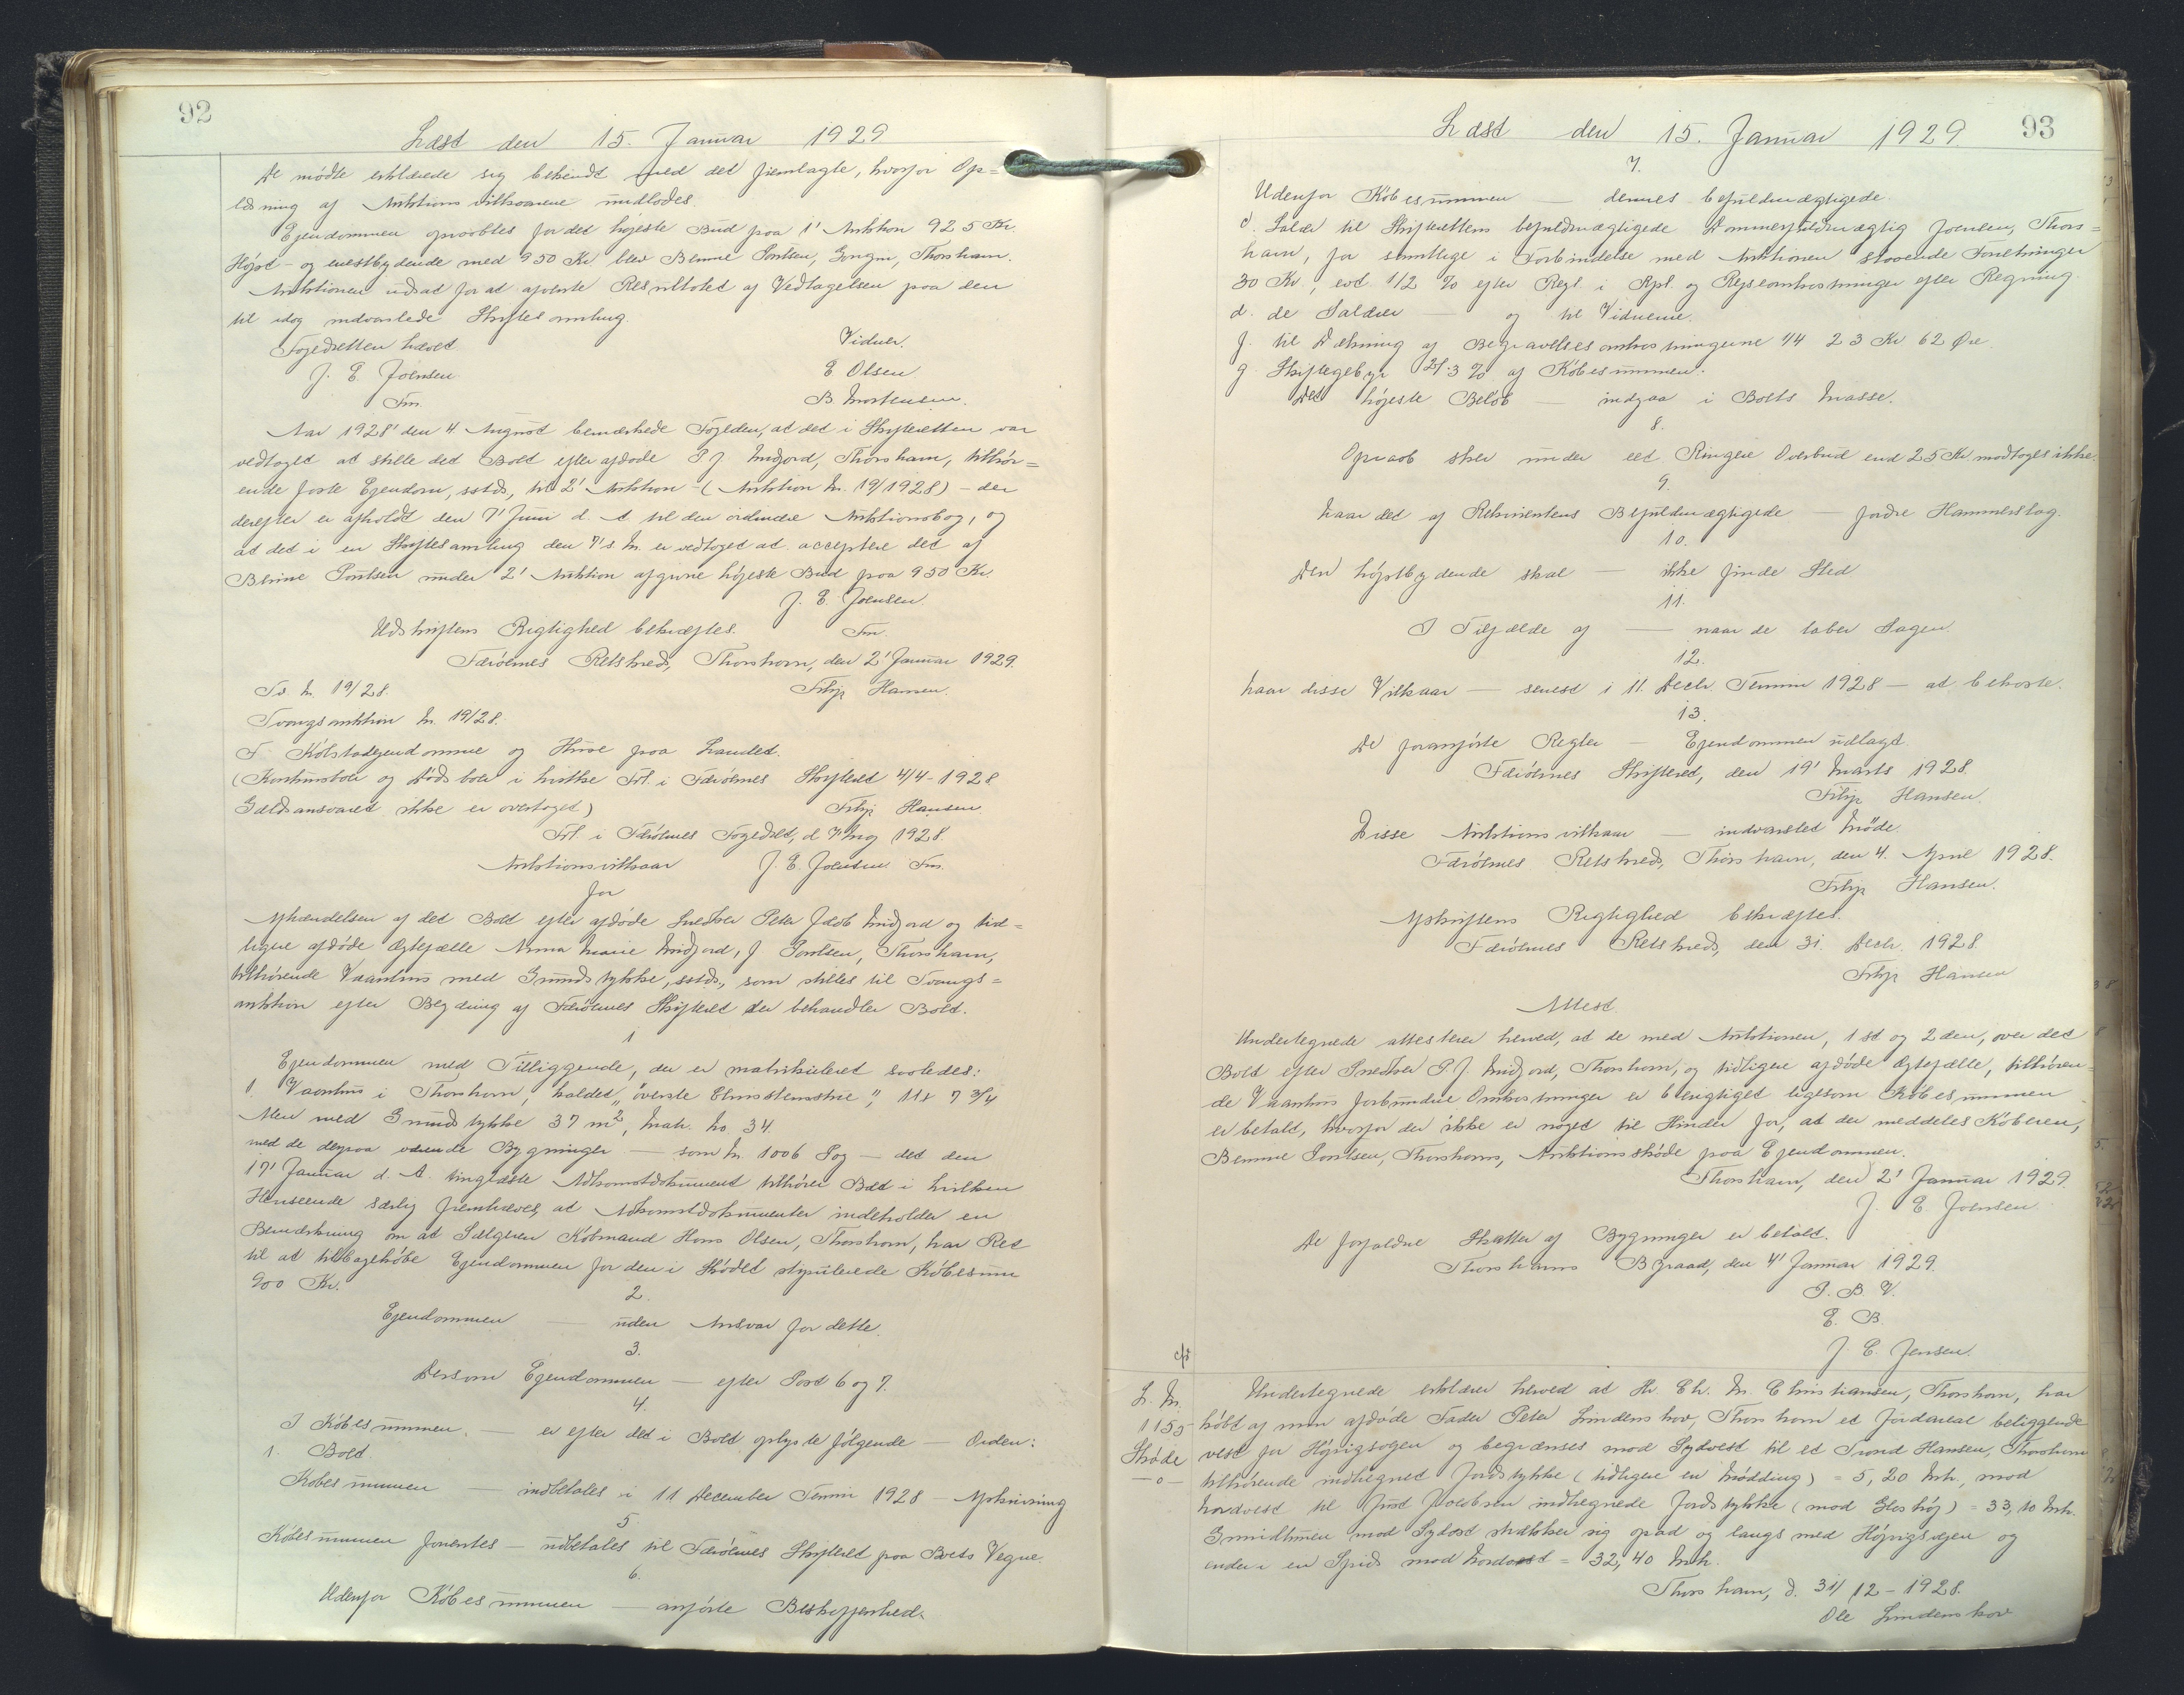 92
Læst den 15. Januar 1929
De mødte erklærede sig bekendt med det fremlagte, hvorfor Op=
læsning af Auktionsvilkaarene undlodes.
Ejendommen opraabtes for det højeste Bud paa 1' Auktion 925 Kr.
Højst- og enestbydende med 950 Kr blev Poulsen, Gongin, Thorshavn.
Auktionen udsat for at afvente Resultatet af Vedtagelsen paa den
til idag indvarslede Skiftesamling.
Fogedretten hævet
Vidner.
J. E. Joensen
E Olsen
Fm.
B. Mortensen.
Aar 1928 den 4. August bemærkede Fogden, at det i Skifteretten var
vedtaget at stille det Boet efter afdøde P J. Midjord, Thorshavn, tilhør=
ende faste Ejendom, sstds, til 2' Auktion - (Auktion Nr. 19/1928) - der
derefter er afholdt den 7' Juni d. A til den ordinære Auktionsbog, og
at det i en Skiftesamling den 7' s. M. er vedtaget at acceptere det af
Poulsen under 2' Auktion afgivne højeste Bud paa 950 Kr.
J. E. Joensen.
Udskriftens Rigtighed bekræftes.
Fm.
Færøernes Retskreds, Thorshavn, den 2' Januar 1929.
Ts. Nr. 19/28.
Filip Hansen.
Tvangsauktion Nr. 19/28.
F. Købstadejendomme og Huse paa Landet.
(Konkursboer og Dødsboer i hvilke Frl. i Færøernes Skifteret 4/4-1928
Gældsansvaret ikke er overtaget)
Filip Hansen.
Frl. i Færøernes Fogedret, d. 7 Aug 1928
Auktionsvilkaar
J. E. Joensen Fm.
for
Afhændelsen af det Boet efter afdøde Snedker Peter Jacob Midjord og tid=
ligere afdøde Ægtefælle Anna Marie Midjord, f Poulsen, Thorshavn,
tilhørende Vaanhus med Grundstykke, sstds., som stilles til Tvangs=
auktion efter Begæring af Færøernes Skifteret der behandler Boet.
1
Ejendommen med Tilliggende, der er matrikuleret saaledes:
1. Vaanhus i Thorshavn, kaldet "øverste ", 11 x 7 3/4
Alen med Grundstykke 37 m², Matr. No. 34.
med de derpaa værende Bygninger - som Nr. 1006 Pag - det den
17' Januar d. A. tinglæste Adkomstdokument tilhører Boet i hvilken
Henseende særlig fremhæves, at Adkomstdokumentet indeholder en
Bemærkning om at Sælgeren Købmand Hans Olsen, Thorshavn, har Ret
til at tilbagekøbe Ejendommen for den i Skødet stipulerede Købesum
900 Kr.
2.
Ejendommen — uden Ansvar for dette.
3.
Dersom Ejendommen — efter Post 6 og 7.
4.
I Købesummen. — er efter det i Boet oplyste følgende — Orden:
1. Boet.
Købesummen — indbetales i 11 December Termin 1928 — Afskrivning
5.
Købesummen forrentes — udbetales til Færøernes Skifteret paa Boets Vegne.
6.
Udenfor Købesummen — anførte Beskaffenhed.
93
Læst den 15. Januar 1929.
7.
Udenfor Købesummen — dennes befuldmægtigede.
d. Salær til Skifterettens befuldmægtigede Dommerfuldmægtig Joensen, Thors=
havn, for samtlige i Forbindelse med Auktionen staaende Forretninger
30 Kr., evt. 1/2 % efter Regl. i Rpl. og Rejseomkostninger efter Regning.
d. de Salærer — og til Vidnerne.
f. til Dækning af Begravelsesomkostningerne 114 23 Kr 62 Øre
g Skiftegebyr 21.3 % af Købesummen.
Det højeste Beløb — indgaa i Boets Masse.
8.
Opraab sker under eet Ringere Overbud end 25 Kr. modtages ikke.
9.
Naar det af Rekvirentens Befuldmægtigede — fordre Hammerslag.
10.
Den højstbydende skal — ikke finde Sted.
11.
I Tilfælde af — naar de taber Sagen.
12.
Naar disse Vilkaar — senest i 11. Decbr. Termin 1928 — at bekoste.
13.
De foranførte Regler — Ejendommen udlagt.
Færøernes Skifteret, den 19' Marts 1928.
Filip Hansen.
Disse Auktionsvilkaar — indvarslet Møde.
Færøernes Retskreds, Thorshavn, den 4. April 1928.
Filip Hansen.
Afskriftens Rigtighed bekræftes.
Færøernes Retskreds, den 31. Decbr. 1928.
Filip Hansen
Attest.
Undertegnede attesterer herved, at de med Auktionen, 1ste og 2den, over det
Boet efter Snedker P. J. Midjord, Thorshavn, og tidligere afdøde Ægtefælle, tilhøren=
de Vaanhus forbundne Omkostninger er berigtiget ligesom Købesummen
er betalt, hvorfor der ikke er noget til Hinder for, at der meddeles Køberen,
Poulsen, Thorshavn, Auktionsskøde paa Ejendommen.
Thorshavn, den 2' Januar 1929.
J. E. Joensen.
De forfaldne Skatter af Bygninger er betalt.
Thorshavns Byraad, den 4' Januar 1929.
P. B. V.
E. B.
J. E. Jensen.
L. Nr.
1155
Skøde
—o—
Undertegnede erklærer herved at Hr. Chr. M. Christiansen, Thorshavn, har
købt af min afdøde Fader Peter Lindenskov, Thorshavn et Jordareal beliggende
vest for Højvigsvejen og begrænses mod Sydvest til et Trond Hansen, Thorshavn
tilhørende indhegnet Jordstykke (tidligere en Mødding) = 5,20 Mtr., mod
Nordvest til Jacobsen indhegnede Jordstykke (mod ) = 33,10 Mtr.
Grundlinien mod Sydost strækker sig opad og langs med Højvigsvejen og
ender i en Spids mod Nordost = 32,40 Mtr.
Thorshavn, d. 31/12-1928.
Ole Lindenskov